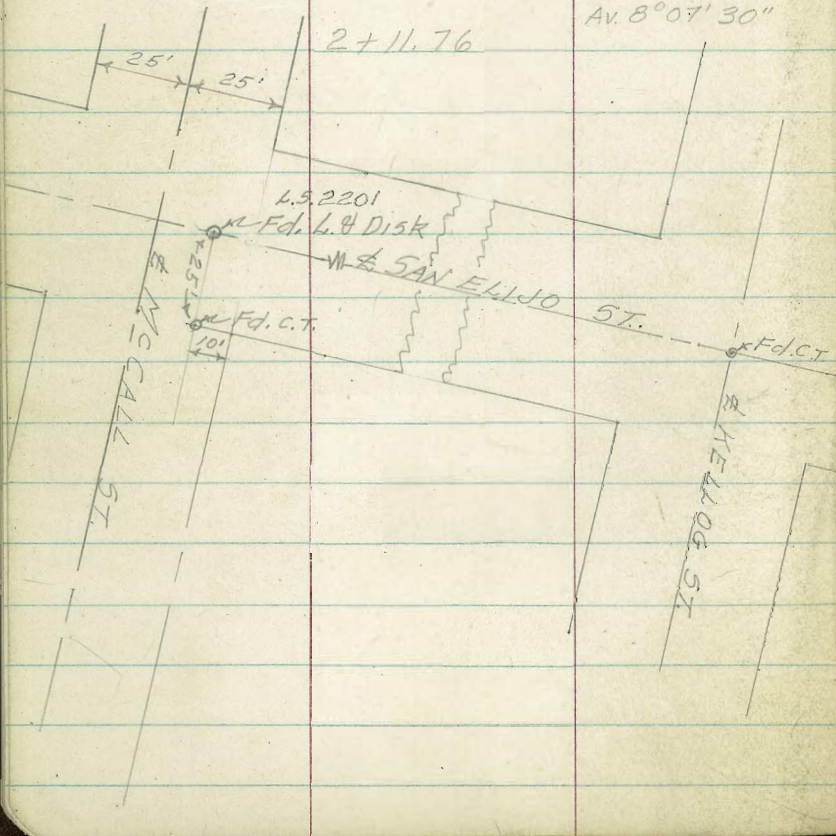 Av. 8°07'30"
2+11.76
25'
25'
L.S. 2201
Fd. L.& Disk
℄ SAN ELIJO ST.
25'
Fd. C.T.
10'
Fd. C.T.
℄ McCALL ST.
℄ KELLOG ST.